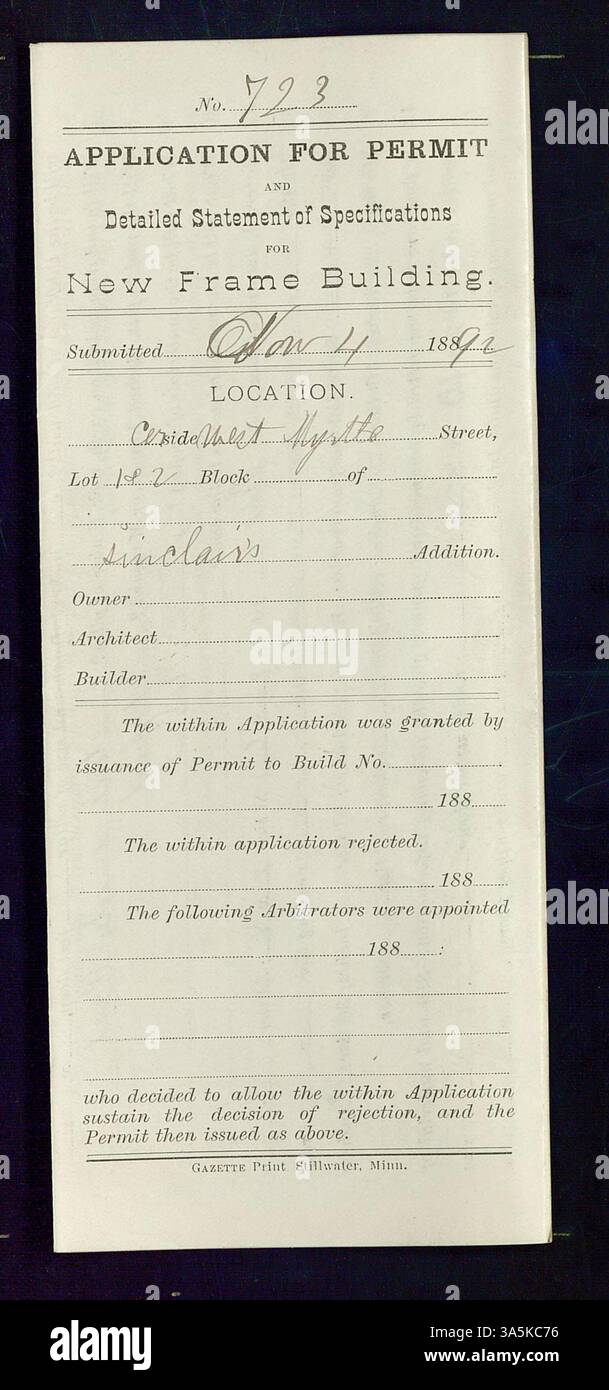 No. 723
APPLICATION FOR PERMIT
AND
Detailed Statement of Specifications
FOR
New Frame Building.
Submitted Nov 4 1892
LOCATION.
Cor side West Myrtle Street,
Lot 1 & 2 Block of
Sinclair's Addition.
Owner
Architect
Builder
The within Application was granted by
issuance of Permit to Build No.
188
The within application rejected.
188
The following Arbitrators were appointed
188 :
who decided to allow the within Application
sustain the decision of rejection, and the
Permit then issued as above.
GAZETTE Print Stillwater, Minn.
alamy
Image ID: 3A5KC76
www.alamy.com